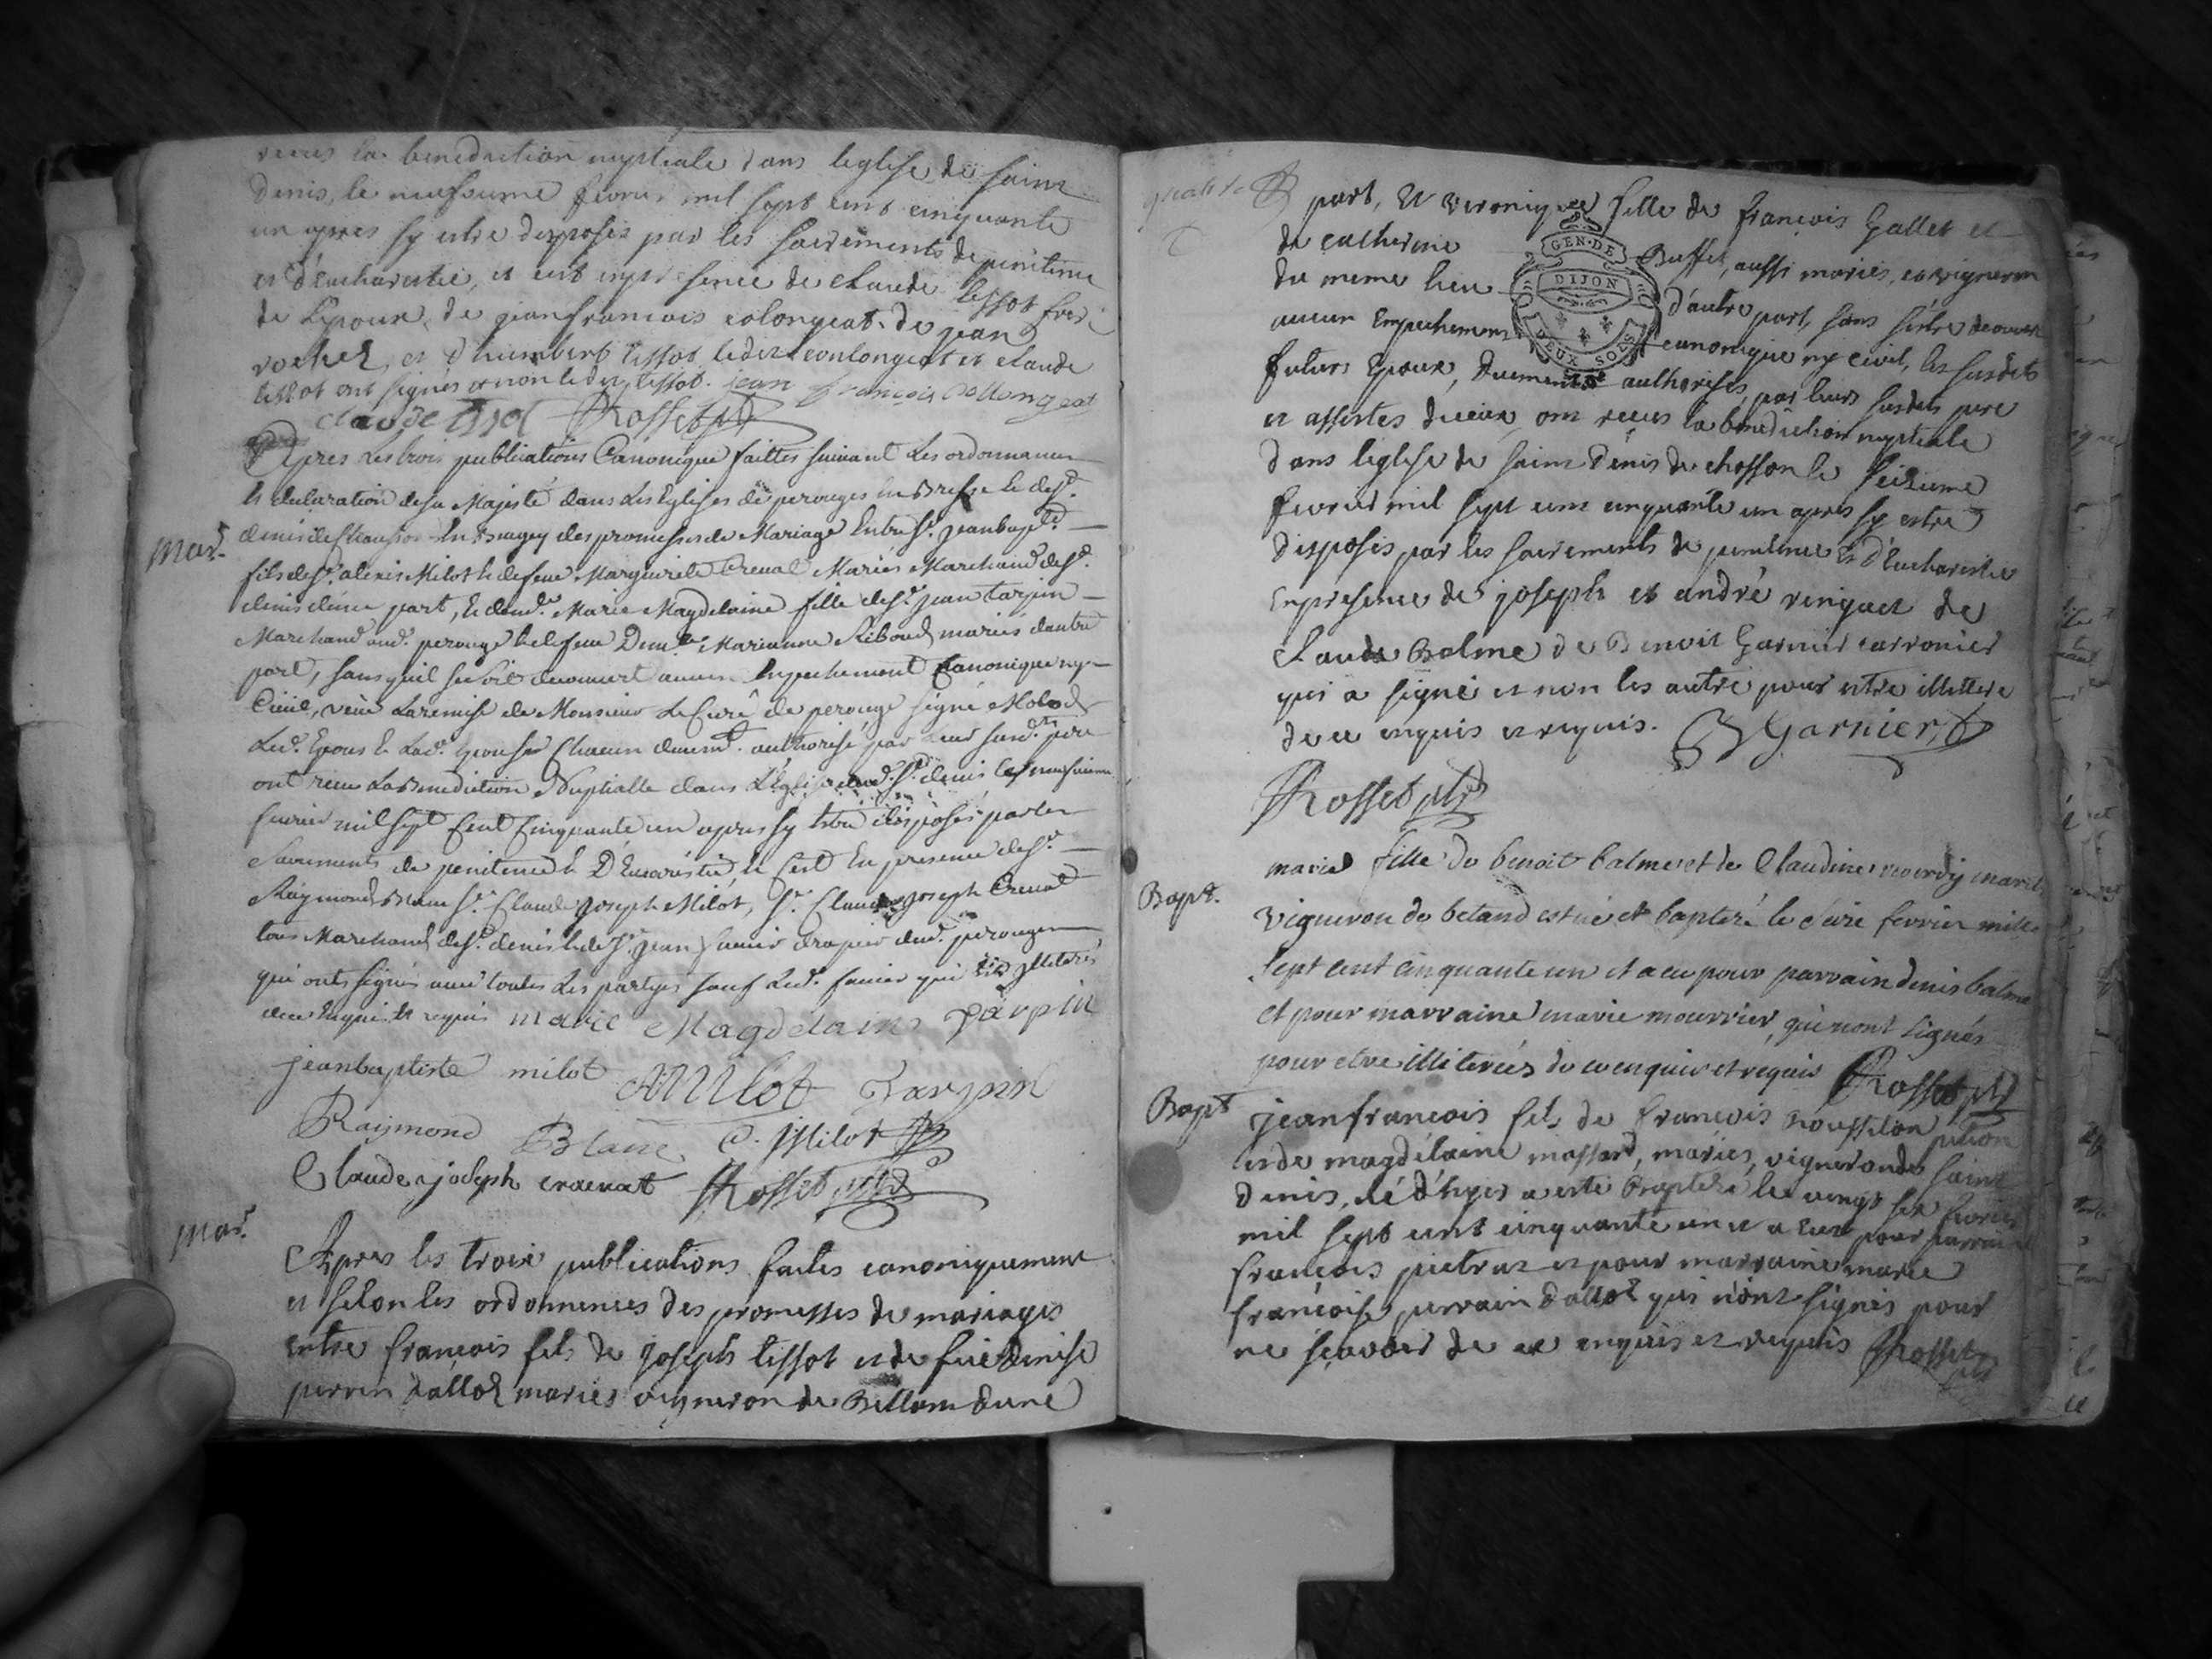 recus la benediction nuptiale dans leglise de saint
denis, le neufieme fevrier mil sept cent cinquante
un apres sy estre disposés par les sacrements de penitence
et d'eucharistie, et ce en presence de claude tissot frere
de l'epoux, de jeanfrancois colongeat de jean
rochet, et d'humbert tissot, ledit conlongeat et claude
tissot ont signés et non ledit tissot. jean francois Collongeat
claude tissot Rosset ptre
Apres Les trois publications Canonique faittes suivant Les ordonnances
et declaration de sa Majesté dans Les Eglises de perouges en Bresse et de st.
denis de Chausson En Bugey des promesses de Mariage Entre sr. jeanbapte.
Mar.
fils de sr. alexis Milot et de feue Marguerite Creuat Mariés Marchand de st.
denis d'une part, et demlle. Marie Magdelaine fille de sr. jean tarpin
Marchand aud. perouge et de feue Demlle Marianne Riboud mariés d'autre
part, sans quil se soit decouvert aucun Empechement Canonique ny
Civile, veüe La remise de Monsieur Le Curé de perouge signé
Led. Epoux et Lad. Epouse Chacun duemt. authorisé par leur susd. pere
ont recu La Benediction Nuptialle dans L'Eglise dud. st. denis le neufvieme
fevrier mil sept Cent Cinquante un apres sy estre disposés par les
Sacrements de penitence et D'Eucaristie, et Cest En presence de sr.
Raymond Blanc sr. Claude Joseph Milot, sr. Claude Joseph Creuat
tous Marchand de st. denis et de sr. jean favier drapier dud. perouge
qui onts signés avec toutes Les partyes sauf Led. favier qui est illeteré
de ce Enquis et requis marie Magdelaine Tarpin
jeanbaptiste milot AMilot Tarpin
Raymond Blanc C. Milot
Claude joseph creuat Rosset ptre
Mar.
Apres les trois publications faites canoniquement
et selon les ordonnences des promesses de mariages
entre francois fils de joseph tissot et de feüe denise
perrin dallot mariés vigneron de Bettant d'une
part, Et veronique fille de francois Gallet et
de catherine Buffet, aussi mariés, et vigneron
du meme lieu d'autre part, sans s'estre decouvert
aucun Empechement canonique ny civil, les susdits
futurs Epoux, duement authorisés, par leurs susdits pere
et assistes diceux, ont recus la benediction nuptiale
dans leglise de saint Denis de chosson le seizieme
fevrier mil sept cent cinquante un apres sy estre
disposés par les sacrements de penitence et d'Eucharistie
En presence de joseph et andré ringuet de
claude Balme de Benoit Garnier carronier
qui a signé et non les autre pour estre illettere
de ce enquis et requis. B Garnier
Rosset ptre
Bapt.
marie fille de benoit balme et de Claudine mariés
vigneron de betand est né et baptisé le seize fevrier mille
sept cent cinquante un et a eu pour parrain denis balme
et pour marraine marie mourrier, qui nont signés
pour etre illiterés de ce enquis et requis Rosset ptre
Bapt
jeanfrancois fils de francois Roussilon
et de magdelaine massard, mariés, vigneron de saint
Denis, né d'hyer a esté Baptisé le vingt six fevrier
mil sept cent cinquante un et a eu pour parrain
francois pietraz et pour marraine marie
francoise perrain dallot qui n'ont signés pour
ne scavoir de ce enquis et requis Rosset ptre
GEN. DE
DIJON
DEUX SOLS